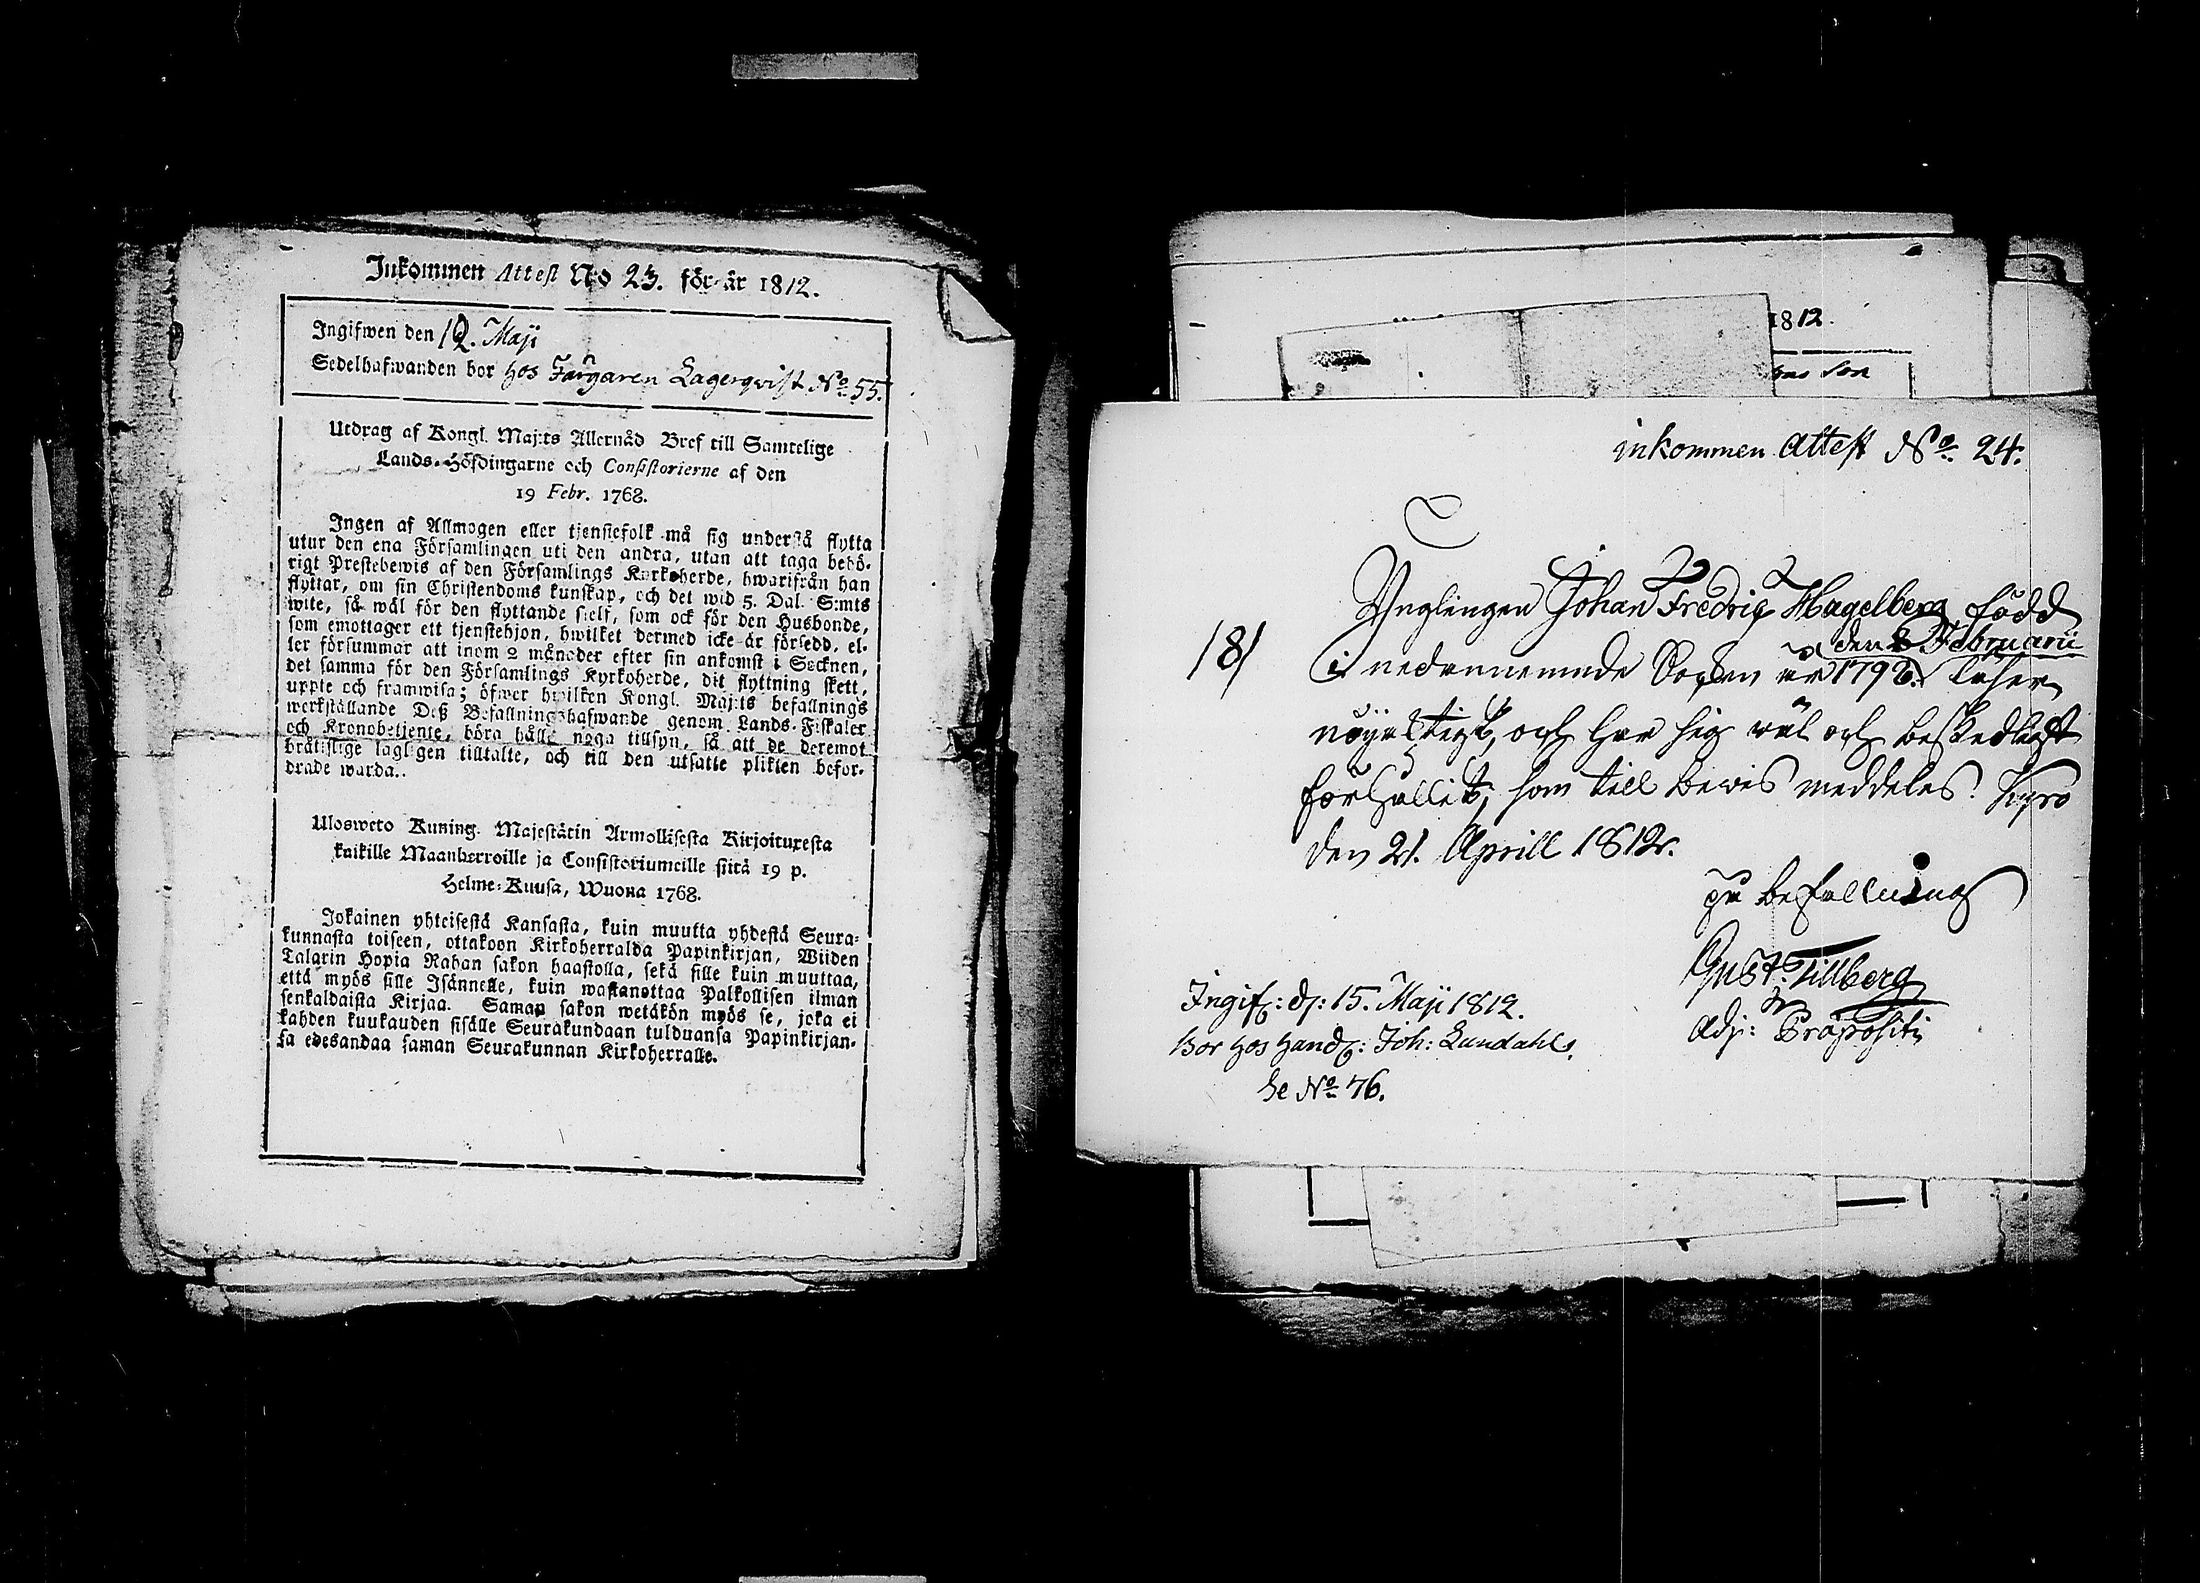 Inkommen Attest No 23. för år 1812.
Ingifwen den 12. Maji
Sedelhafwanden bor hos Färgaren Lagerqvist No 55.
Utdrag af Kongl. Maj:ts Allernåd Bref till Samtelige
Lands-Höfdingarne och Consistorierne af den
19 Febr. 1768.
Ingen af Allmogen eller tjenstefolk må sig understå flytta
utur den ena Församlingen uti den andra, utan att taga behö-
rigt Prestebewis af den Församlings Kyrkoherde, hwarifrån han
flyttar, om sin Christendoms kunskap, och det wid 5. Dal. S:mts
wite, så wäl för den flyttande sjelf, som ock för den Husbonde,
som emottager ett tjenstehjon, hwilket dermed icke är försedd, el-
ler försummar att inom 2 måneder efter sin ankomst i Secknen,
det samma för den Församlings Kyrkoherde, dit flyttning skett,
uppte och framwisa; öfwer hwilken Kongl. Maj:ts befallnings
werkställande Deß Befallningshafwande genom Lands-Fiskaler
och Kronobetjente, böra hålla noga tillsyn, så att de deremot
bråtislige lagligen tilltalte, och till den utsatte plikten befor-
drade warda.
Ulosweto Kuning. Majestätin Armollisesta Kirjoituxesta
kaikille Maanherroille ja Consistoriumeille siitä 19 p.
Helme-Kuusa, Wuona 1768.
Jokainen yhteisestä Kansasta, kuin muutta yhdestä Seura-
kunnasta toiseen, ottakoon Kirkoherralda Papinkirjan, Wiiden
Talarin Hopia Rahan sakon haastolla, sekä sille kuin muuttaa,
että myös sille Isännelle, kuin wastanottaa Palkollisen ilman
senkaldaista Kirjaa. Saman sakon wetäkön myös se, joka ei
kahden kuukauden sisälle Seurakundaan tulduansa Papinkirjan-
sa edesandaa saman Seurakunnan Kirkoherralle.
1812.
son
inkommen Attest No. 24.
181
Ynglingen Johan Fredric Hagelberg född
den 8 Februarii
i nedannemnde Socken år 1792. läser
nöjaktigt, och har sig wäl och beskedligt
förhållit; som till bewis meddeles. Kyro
den 21. Aprill 1812.
På befallning
Gust. Tillberg
Adj: Præpositi
Ingif: d: 15. Maji 1812.
Bor hos Hand: Joh: Lundahl.
No. 76.